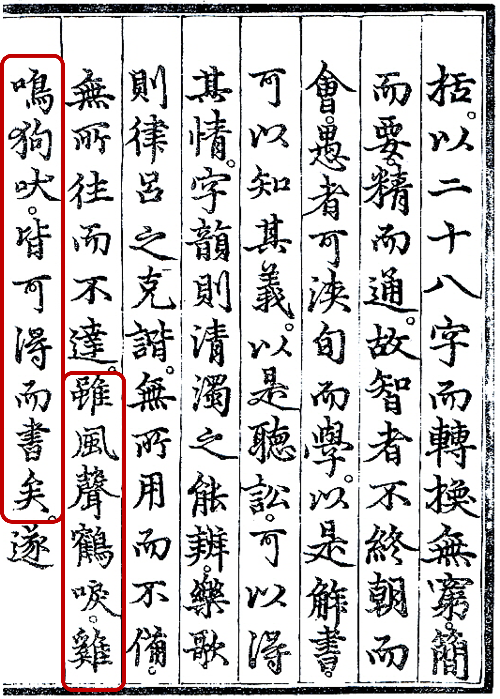 括。以二十八字而轉換無窮。簡
而要。精而通。故智者不終朝而
會。愚者可浹旬而學。以是解書。
可以知其義。以是聽訟。可以得
其情。字韻則清濁之能辨。樂歌
則律呂之克諧。無所用而不備。
無所往而不達。雖風聲鶴唳。雞
鳴狗吠。皆可得而書矣。遂